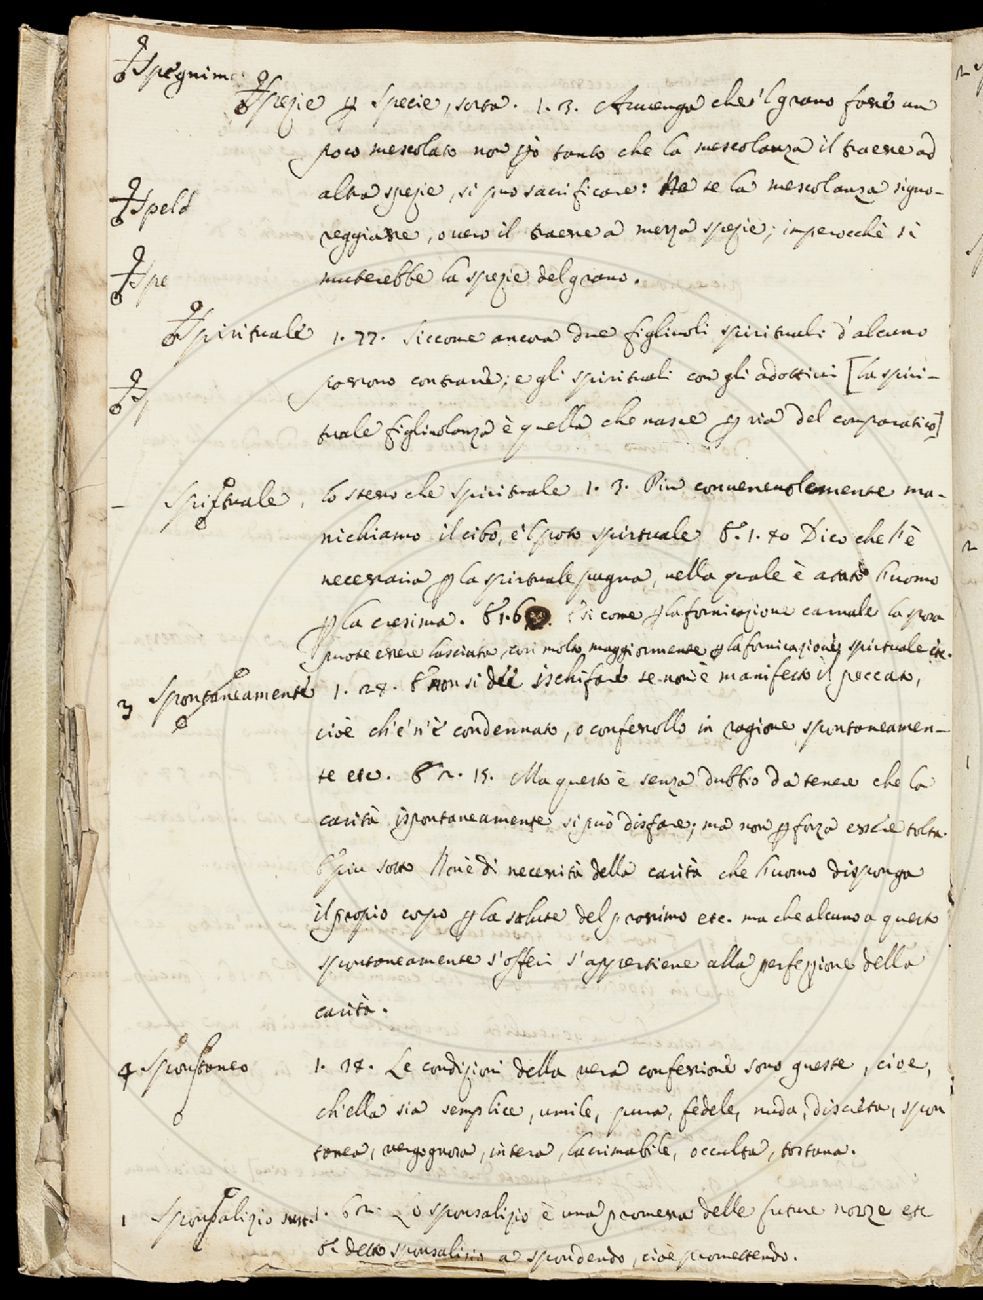 Spegnim
Spezie ꝑ Specie, sorta. 1. 3. Avvenga che 'l grano fosse un
poco mescolato non ꝑò tanto che la mescolanza il traesse ad
altra spezie, si può sacrificare: Ma se la mescolanza signo-
reggiasse, overo il traesse a mezza spezie; imperocchè si
Speld
muterebbe la spezie del grano.
Spe
Spirituale 1. 77. Siccome ancora due figliuoli spirituali d'alcuno
possono contrarre; e gli spirituali con gli adottivi [la spiri-
tuale figliuolanza è quella che nasce ꝑ via del comparatico]
Spirtuale, lo stesso che Spirituale 1. 3. Più convenevolemente ma-
nichiamo il cibo, e 'l poto spirtuale & 1. 40 Dico che l'è
necessaria ꝑ la spirtuale pugna, nella quale è atato l'uomo
ꝑ la cresima. & 1. 6 . E si come ꝑ la fornicazione carnale la sposa
puote essere lasciata, così molto maggiormente ꝑ la fornicazione spirtuale etc.
3 Spontaneamente 1. 28. E non si dee ischifare se non è manifesto il peccato,
cioè ch'e' n'è condennato, o confessollo in ragione spontaneamen-
te etc. & 2. 15. Ma questo è senza dubbio da tenere che la
carità ispontaneamente si può disfare; ma non ꝑ forza essere tolta.
& più sotto Non è di necessità della carità che l'uomo disponga
il propio corpo ꝑ la salute del prossimo etc. ma che alcuno a questo
spontaneamente s'offeri s'appertiene alla perfezzione della
carità.
4 Spontaneo 1. 24. Le condizioni della vera confessione sono queste, cioe,
ch'ella sia semplice, umile, pura, fedele, nuda, discreta, spon
tanea, vergognosa, intera, lacrimabile, occulta, tostana.
1 Sponsalizio sust. 1. 62. Lo sponsalizio è una promessa delle future nozze etc
& detto sponsalizio a spondendo, cioè promettendo.